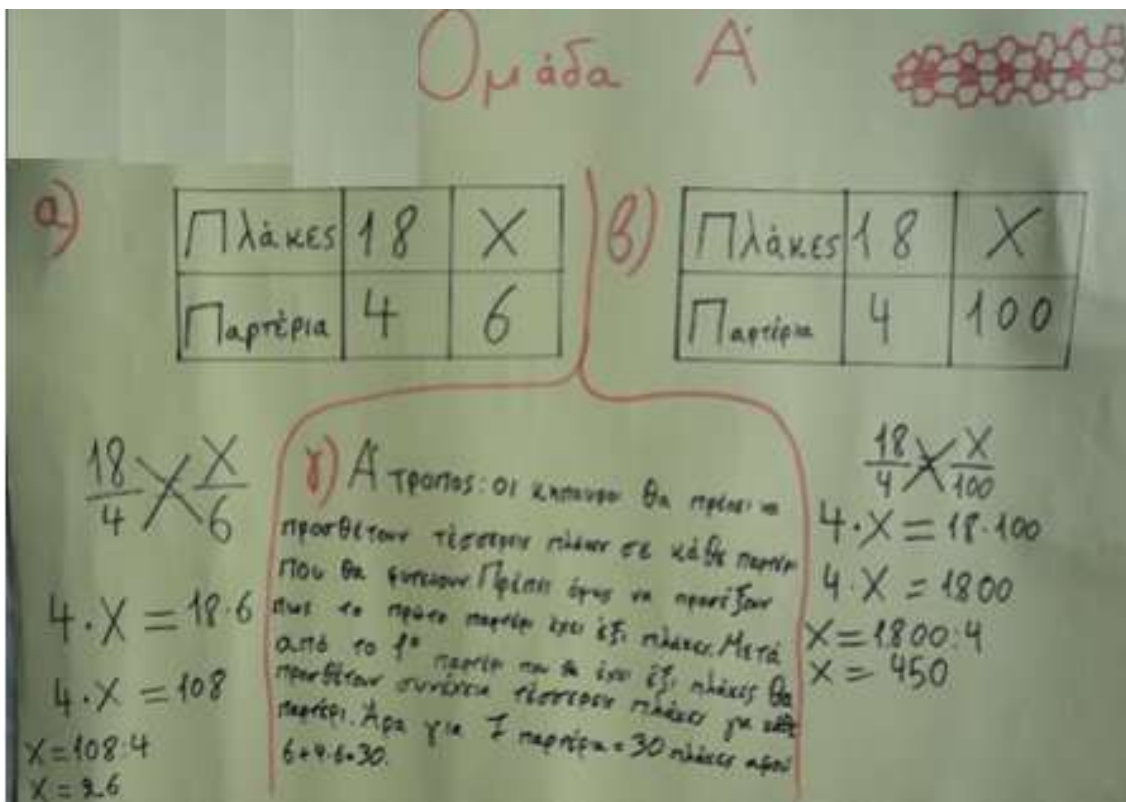 Ομάδα Α'
α)
Πλάκες 18 Χ
Παρτέρια 4 6
18/4 Χ Χ/6
4·Χ = 18·6
4·Χ = 108
Χ = 108:4
Χ = 26
β)
Πλάκες 18 Χ
Παρτέρια 4 100
18/4 Χ Χ/100
4·Χ = 18·100
4·Χ = 1800
Χ = 1800:4
Χ = 450
γ) Α' τρόπος: οι κηπουροί θα πρέπει να
προσθέτουν τέσσερεις πλάκες σε κάθε παρτέρι
που θα φυτεύουν. Πρέπει όμως να προσέξουν
πως το πρώτο παρτέρι έχει έξι πλάκες. Μετά
από το 1ο παρτέρι που θα έχει έξι πλάκες θα
προσθέτουν συνέχεια τέσσερεις πλάκες για κάθε
παρτέρι. Άρα για 7 παρτέρια = 30 πλάκες αφού
6+4·6=30.